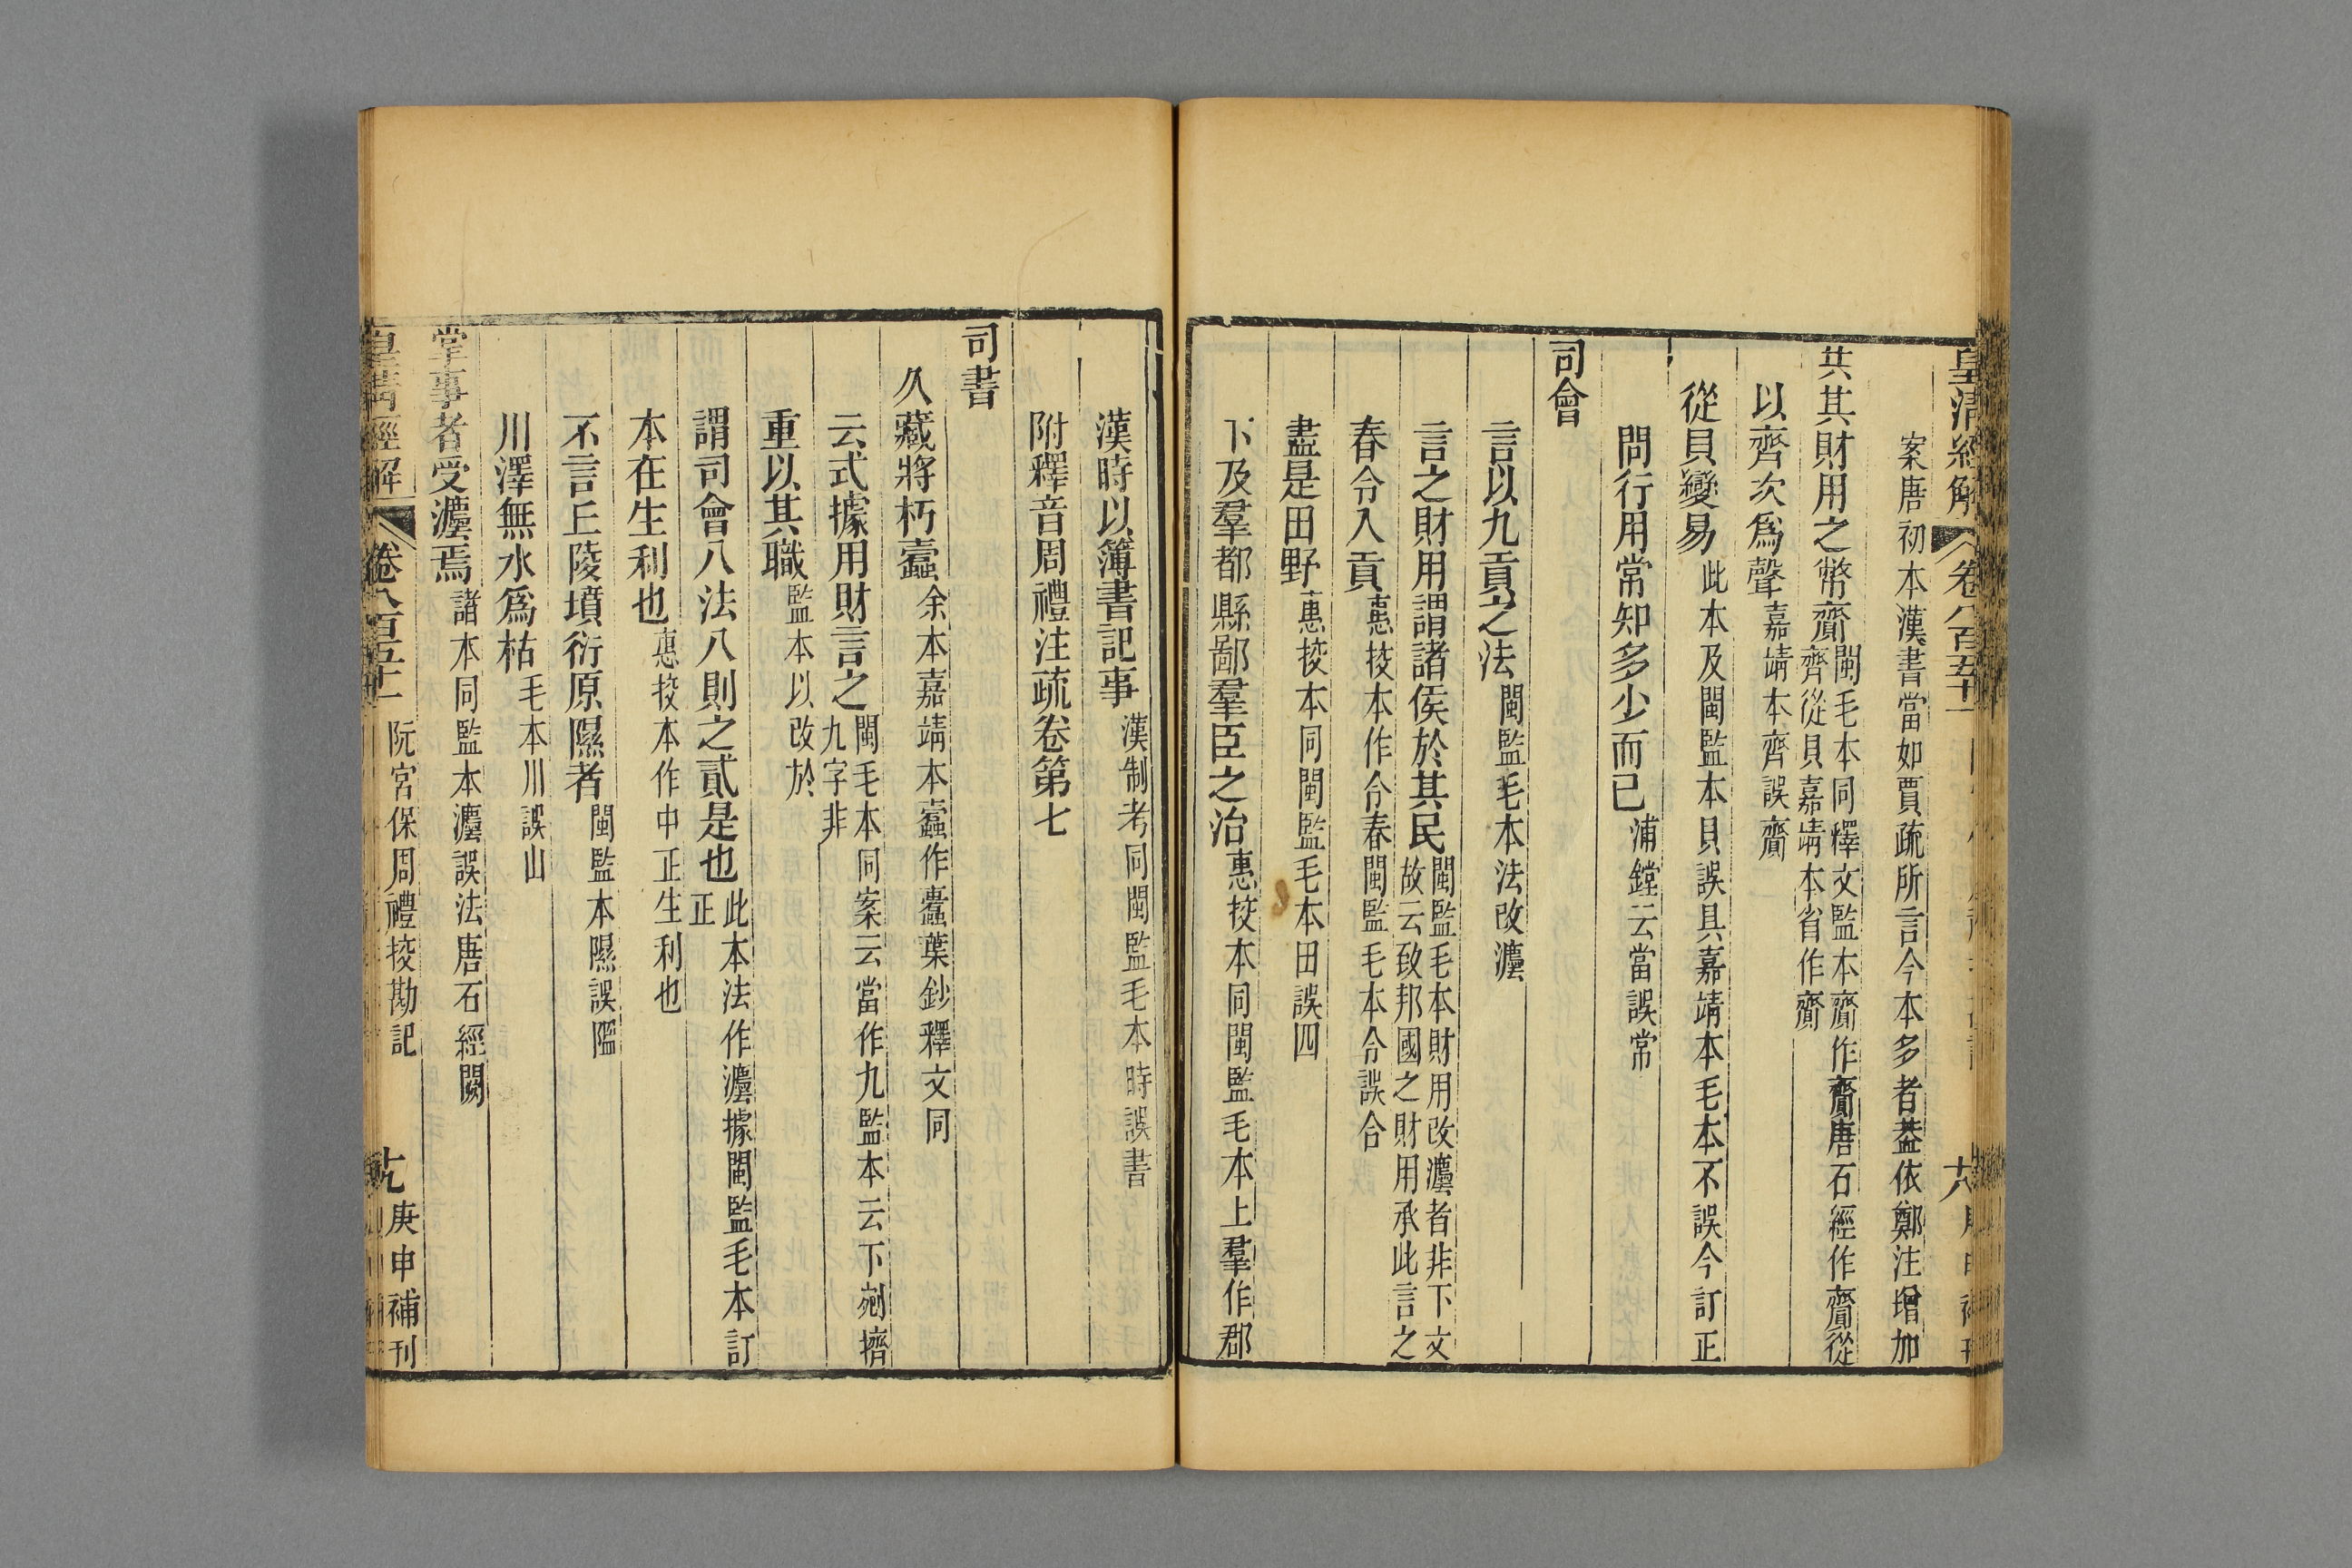 皇清經解 卷八百五十一
案唐初本漢書當如賈疏所言今本多者葢依鄭注增加
共其財用之幣齎閩毛本同釋文監本齎作齎唐石經作齎從
齊從貝嘉靖本省作齎
以齊次爲聲嘉靖本齊誤齎
從貝變易此本及閩監本貝誤具嘉靖本毛本不誤今訂正
問行用常知多少而已浦鏜云當誤常
司會
言以九貢之法閩監毛本法改灋
言之財用謂諸侯於其民閩監毛本財用改灋者非下文
故云致邦國之財用承此言之
春令入貢惠挍本作令春閩監毛本令誤合
盡是田野惠挍本同閩監毛本田誤四
下及羣都縣鄙羣臣之治惠挍本同閩監毛本上羣作郡
漢時以簿書記事漢制考同閩監毛本時誤書
附釋音周禮注疏卷第七
司書
久藏將朽蠹余本嘉靖本蠹作蠧葉鈔釋文同
云式據用財言之閩毛本同案云當作九監本云下剜擠
九字非
重以其職監本以改於
謂司會八法八則之貳是也此本法作灋據閩監毛本訂
正
本在生利也惠挍本作中正生利也
不言丘陵墳衍原隰者閩監本隰誤隘
川澤無水爲枯毛本川誤山
掌事者受灋焉諸本同監本灋誤法唐石經闕
皇清經解 卷八百五十一 阮宮保周禮挍勘記 十九 庚申補刊